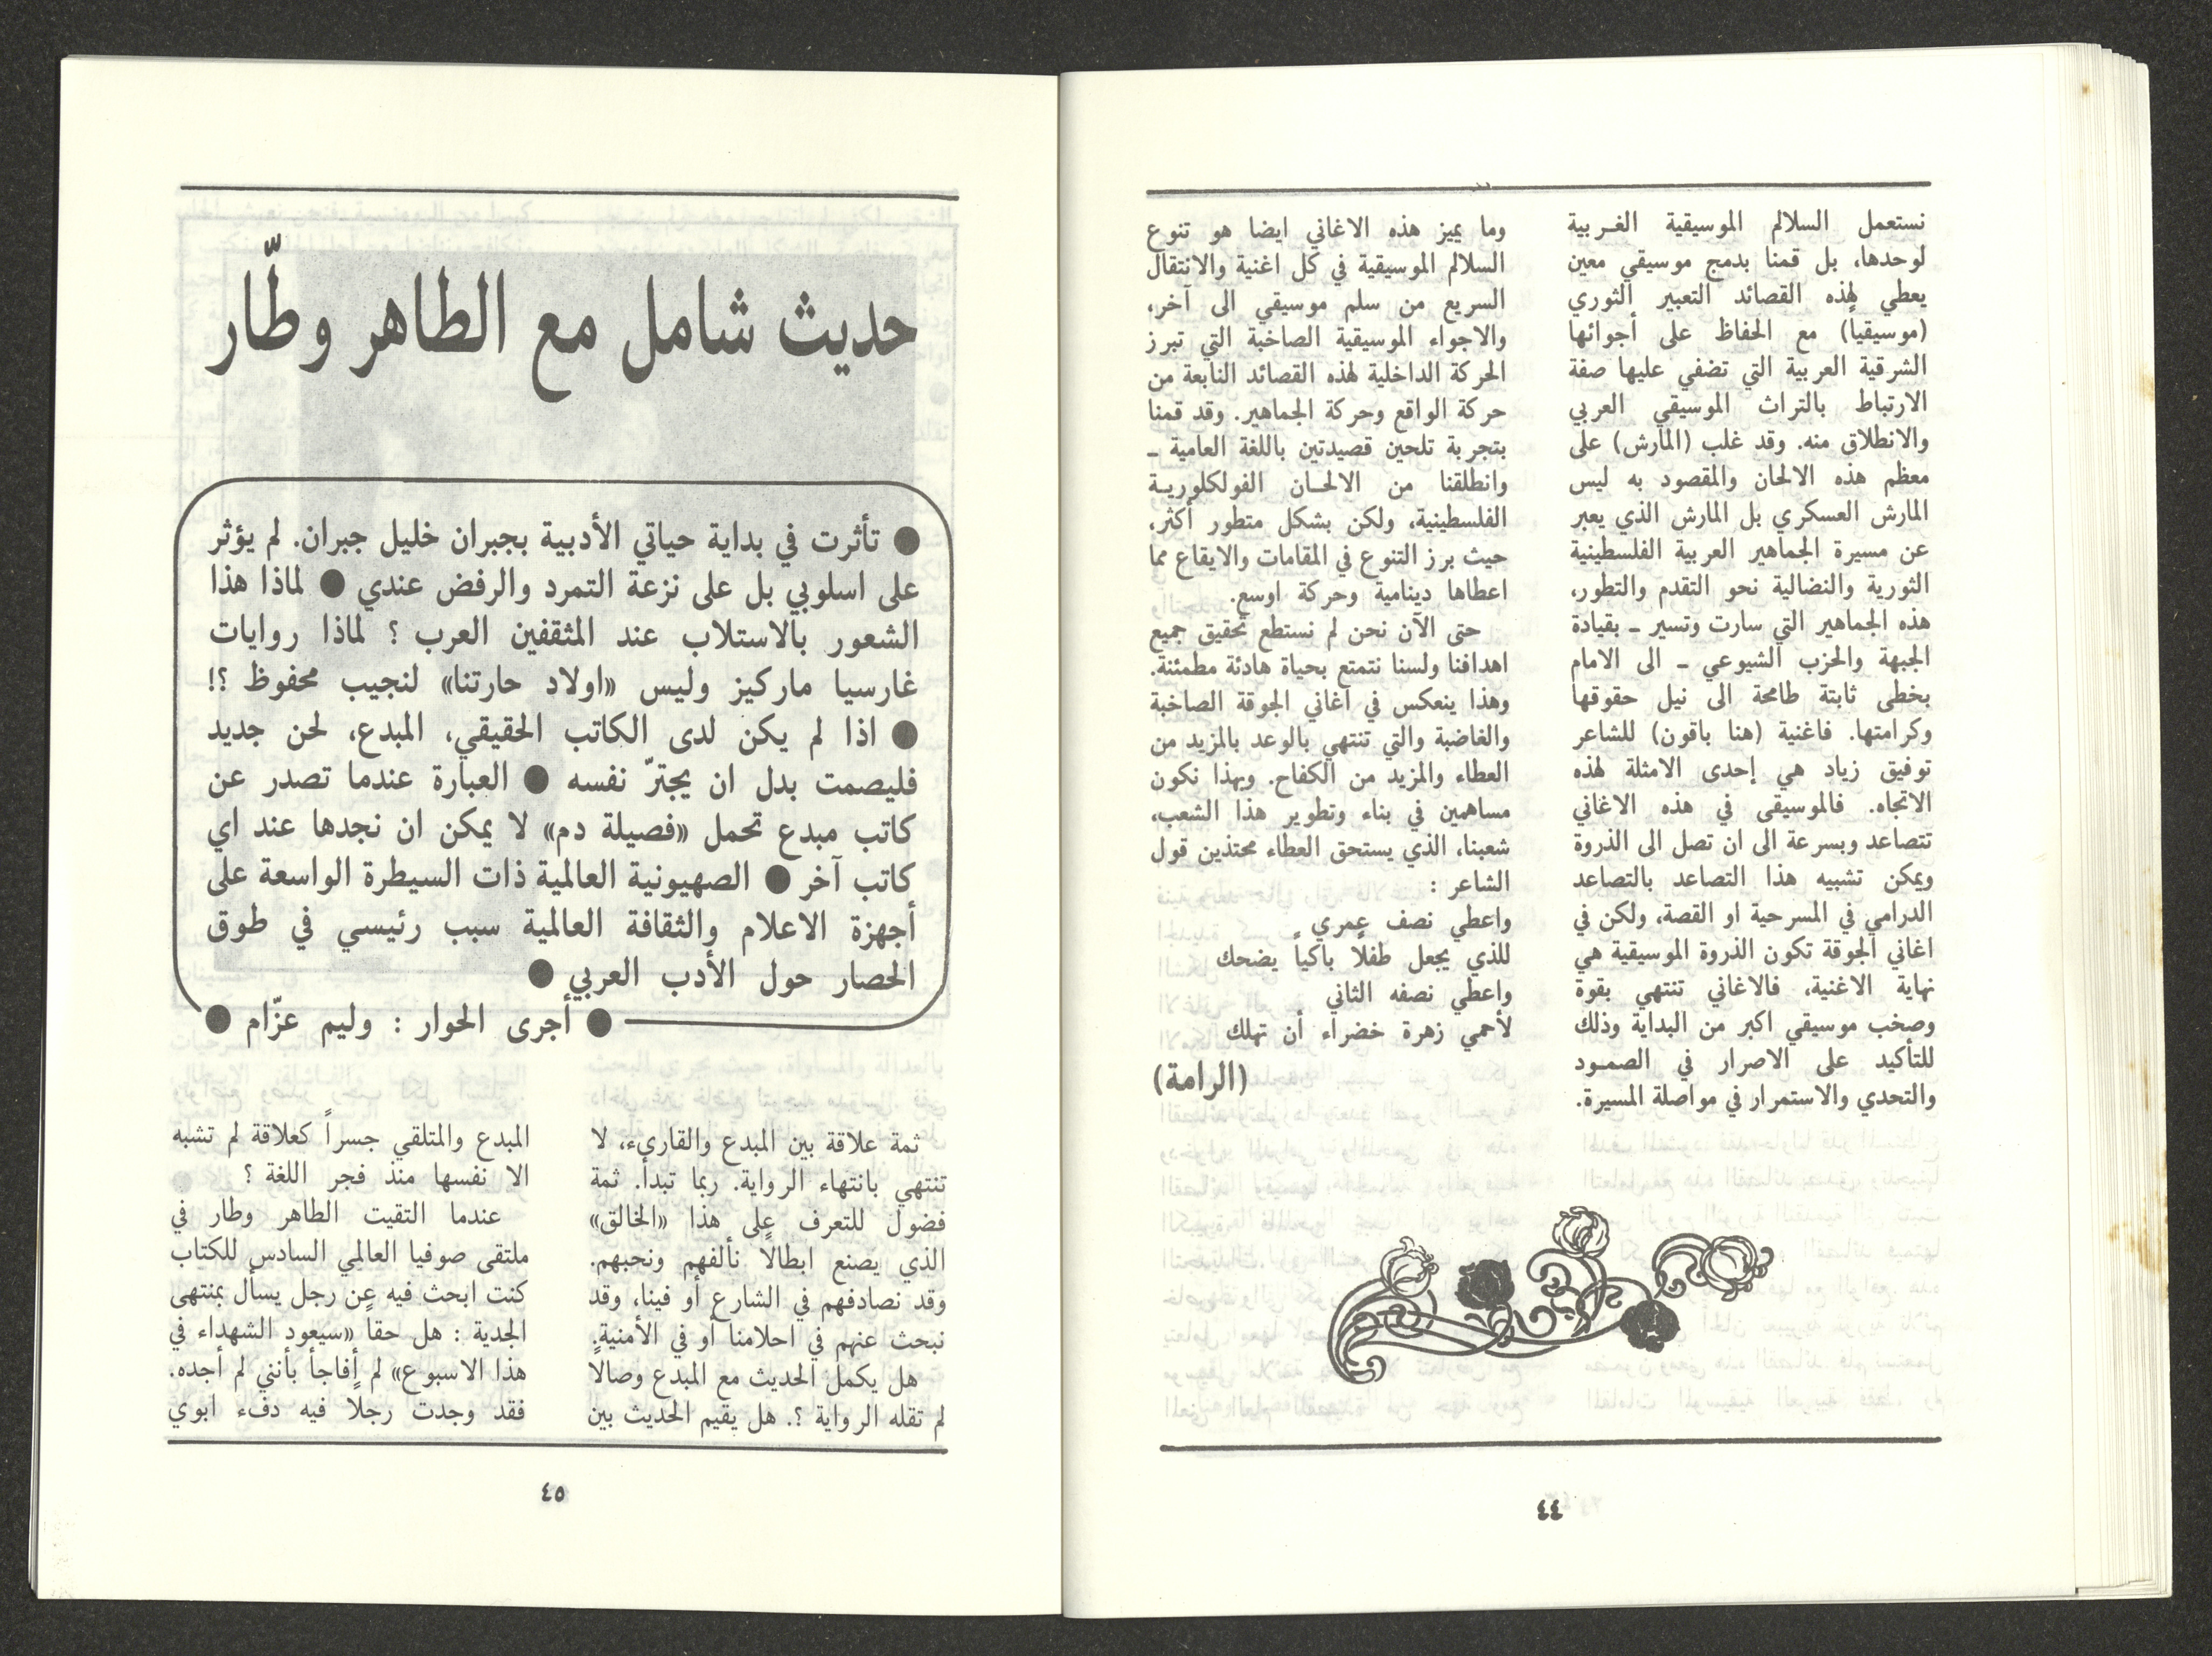 نستعمل السلالم الموسيقية الغـربية
لوحدها، بل قمنا بدمج موسيقي معين
يعطي لهذه القصائد التعبير الثوري
(موسيقياً) مع الحفاظ على أجوائها
الشرقية العربية التي تضفي عليها صفة
الارتباط بالتراث الموسيقي العربي
والانطلاق منه. وقد غلب (المارش) على
معظم هذه الالحان والمقصود به ليس
المارش العسكري بل المارش الذي يعبر
عن مسيرة الجماهير العربية الفلسطينية
الثورية والنضالية نحو التقدم والتطور،
هذه الجماهير التي سارت وتسير ـ بقيادة
الجبهة والحزب الشيوعي ـ الى الامام
بخطى ثابتة طامحة الى نيل حقوقها
وكرامتها. فاغنية (هنا باقون) للشاعر
توفيق زياد هي إحدى الامثلة لهذه
الاتجاه. فالموسيقى في هذه الاغاني
تتصاعد وبسرعة الى ان تصل الى الذروة
ويمكن تشبيه هذا التصاعد بالتصاعد
الدرامي في المسرحية او القصة، ولكن في
اغاني الجوقة تكون الذروة الموسيقية هي
نهاية الاغنية، فالاغاني تنتهي بقوة
وصخب موسيقي اكبر من البداية وذلك
للتأكيد على الاصرار في الصمـود
والتحدي والاستمرار في مواصلة المسيرة.
وما يميز هذه الاغاني ايضا هو تنوع
السلالم الموسيقية في كل اغنية والانتقال
السريع من سلم موسيقي الى آخر،
والاجواء الموسيقية الصاخبة التي تبرز
الحركة الداخلية لهذه القصائد النابعة من
حركة الواقع وحركة الجماهير. وقد قمنا
بتجربة تلحين قصيدتين باللغة العامية ـ
وانطلقنا من الالحـان الفولكلوريـة
الفلسطينية، ولكن بشكل متطور أكثر،
حيث برز التنوع في المقامات والايقاع مما
اعطاها دينامية وحركة اوسع.
حتى الآن نحن لم نستطع تحقيق جميع
اهدافنا ولسنا نتمتع بحياة هادئة مطمئنة.
وهذا ينعكس في اغاني الجوقة الصاخبة
والغاضبة والتي تنتهي بالوعد بالمزيد من
العطاء والمزيد من الكفاح. وبهذا نكون
مساهمين في بناء وتطوير هذا الشعب،
شعبنا، الذي يستحق العطاء محتذين قول
الشاعر :
واعطي نصف عمري
للذي يجعل طفلاً باكياً يضحك
واعطي نصفه الثاني
لأحمي زهرة خضراء أن تهلك
(الرامة)
٤٤
حديث شامل مع الطاهر وطّار
● تأثرت في بداية حياتي الأدبية بجبران خليل جبران. لم يؤثر
على اسلوبي بل على نزعة التمرد والرفض عندي ● لماذا هذا
الشعور بالاستلاب عند المثقفين العرب ؟ لماذا روايات
غارسيا ماركيز وليس «اولاد حارتنا» لنجيب محفوظ ؟!
● اذا لم يكن لدى الكاتب الحقيقي، المبدع، لحن جديد
فليصمت بدل ان يجترّ نفسه ● العبارة عندما تصدر عن
كاتب مبدع تحمل «فصيلة دم» لا يمكن ان نجدها عند اي
كاتب آخر ● الصهيونية العالمية ذات السيطرة الواسعة على
أجهزة الاعلام والثقافة العالمية سبب رئيسي في طوق
الحصار حول الأدب العربي ●
● أجرى الحوار : وليم عزّام ●
ثمة علاقة بين المبدع والقارىء، لا
تنتهي بانتهاء الرواية. ربما تبدأ. ثمة
فضول للتعرف على هذا «الخالق»
الذي يصنع ابطالاً نألفهم ونحبهم.
وقد نصادفهم في الشارع أو فينا، وقد
نبحث عنهم في احلامنا أو في الأمنية.
هل يكمل الحديث مع المبدع وصالاً
لم تقله الرواية ؟. هل يقيم الحديث بين
المبدع والمتلقي جسراً كعلاقة لم تشبه
الا نفسها منذ فجر اللغة ؟
عندما التقيت الطاهر وطار في
ملتقى صوفيا العالمي السادس للكتاب
كنت ابحث فيه عن رجل يسأل بمنتهى
الجدية : هل حقاً «سيعود الشهداء في
هذا الاسبوع» لم أفاجأ بأنني لم أجده.
فقد وجدت رجلاً فيه دفء ابوي
٤٥